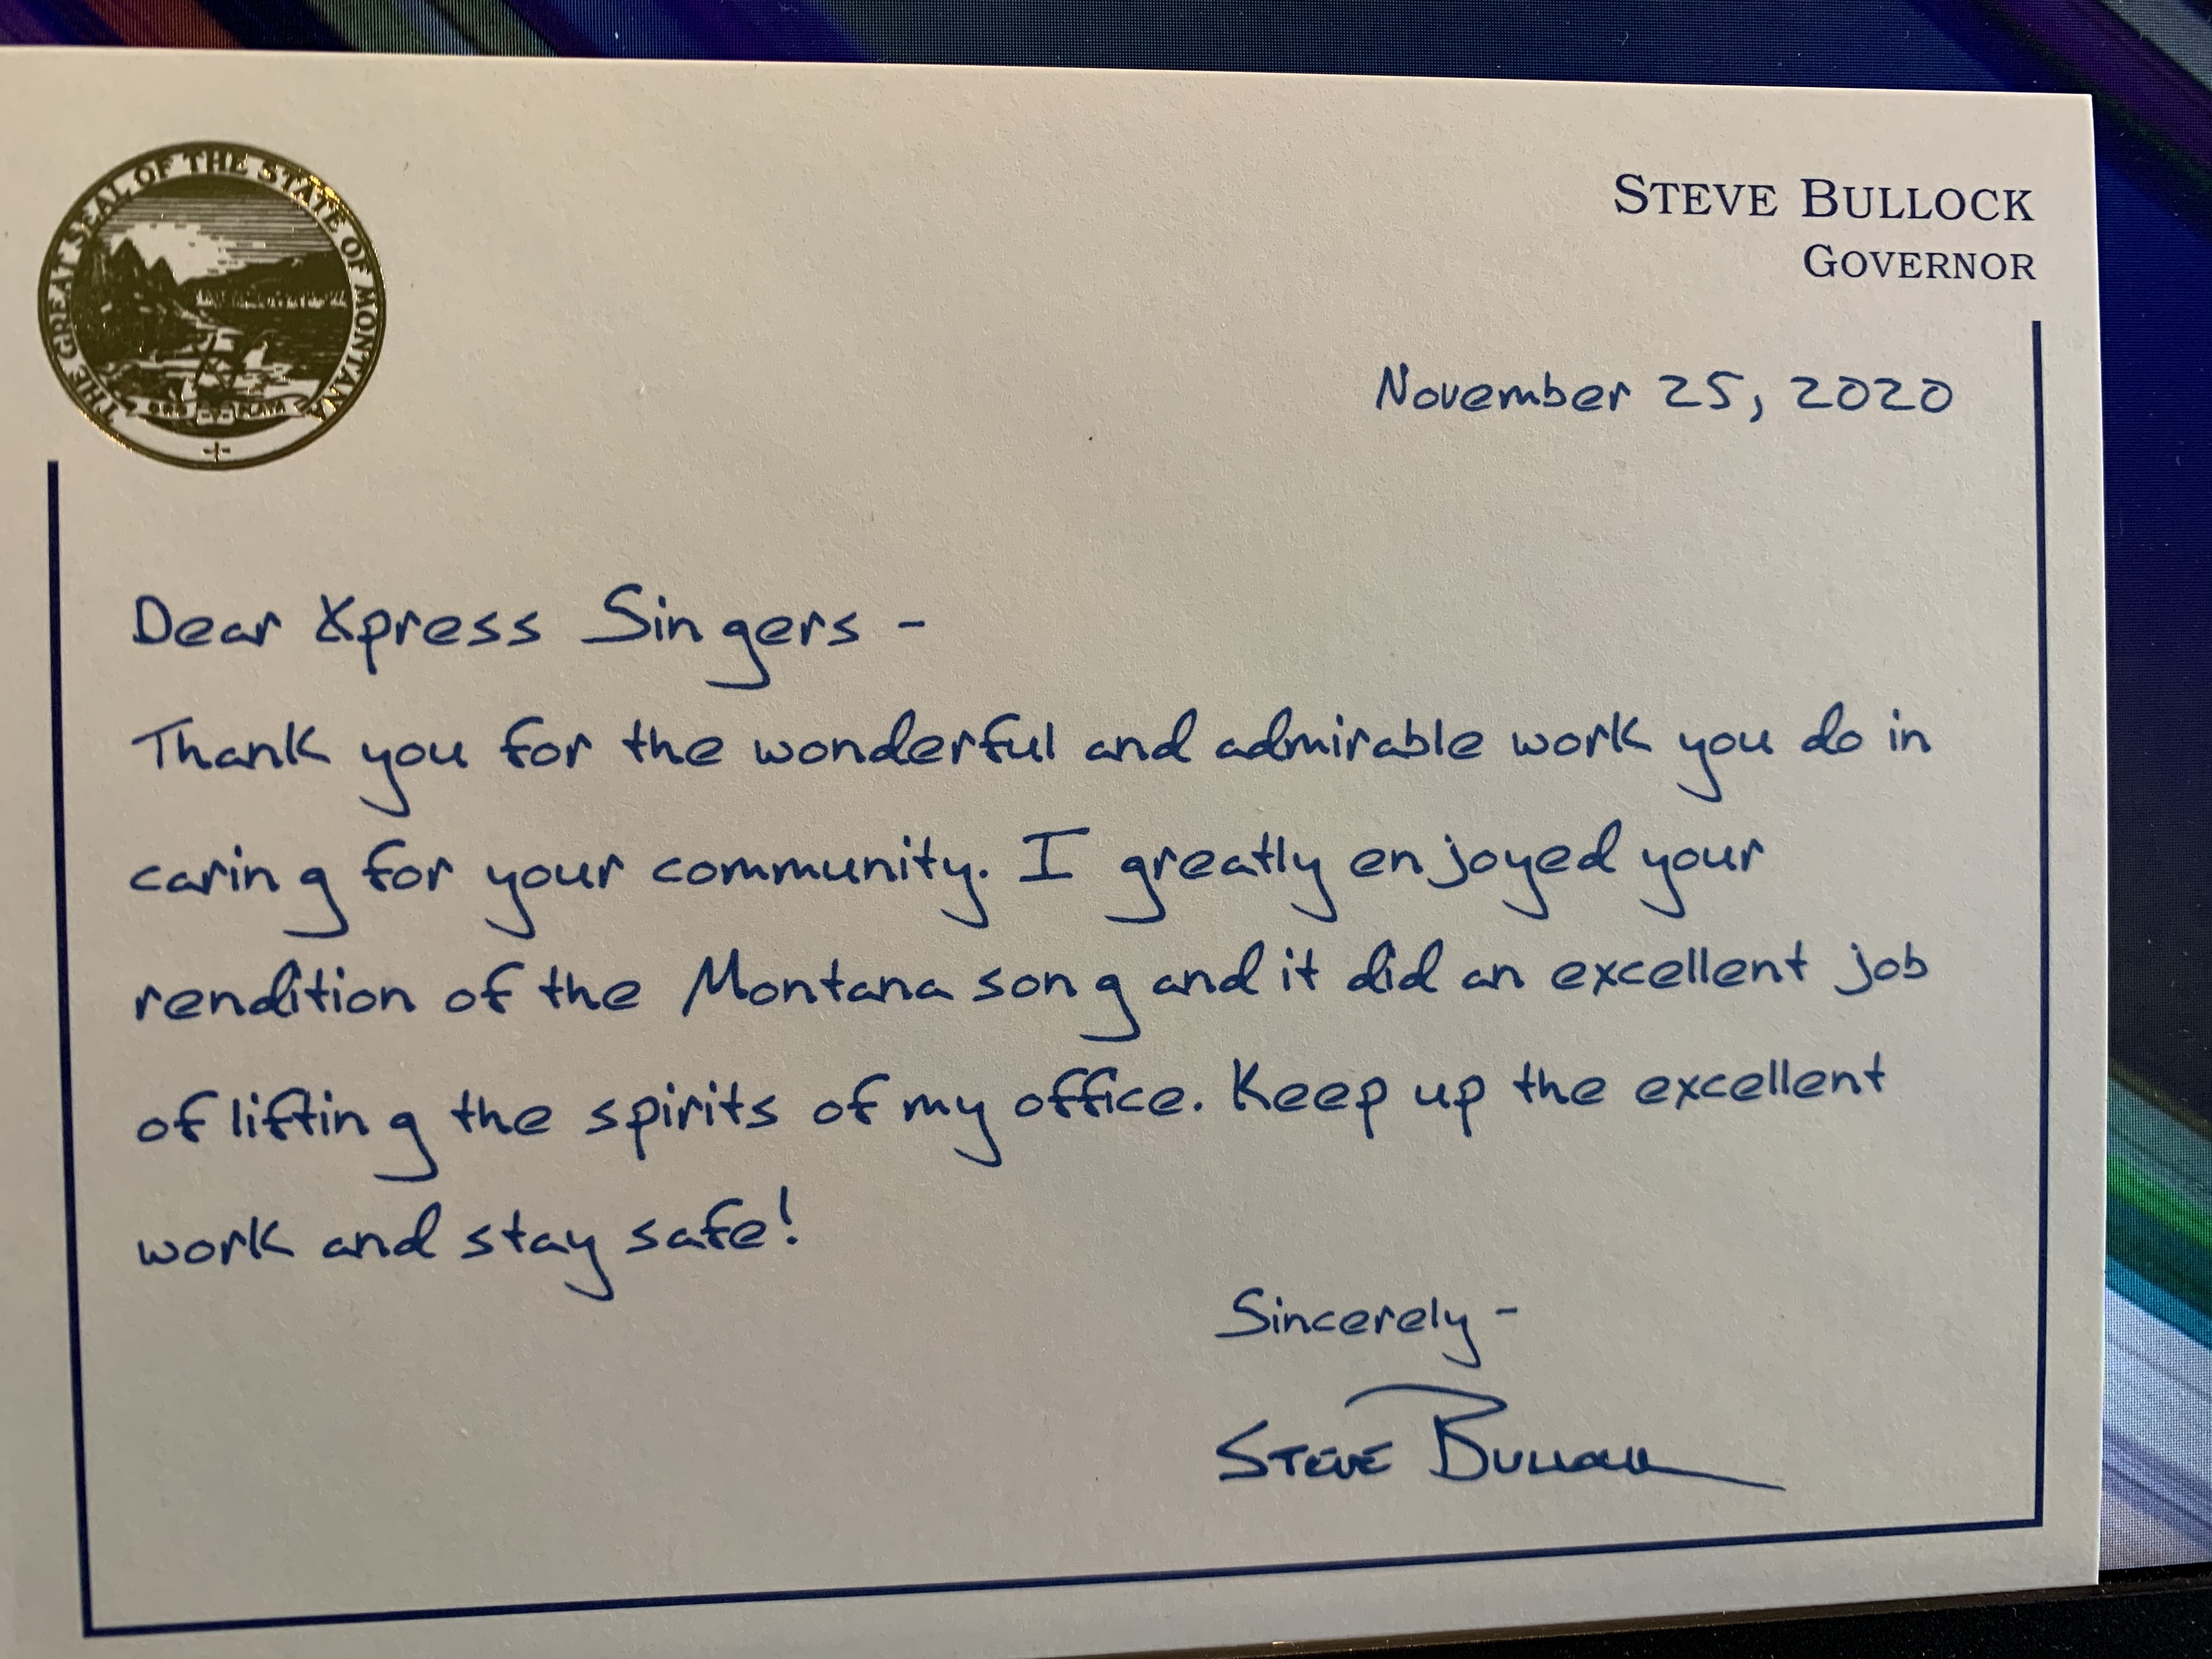 THE GREAT SEAL OF THE STATE OF MONTANA
ORO Y PLATA
STEVE BULLOCK
GOVERNOR
November 25, 2020
Dear Xpress Singers -
Thank you for the wonderful and admirable work you do in
caring for your community. I greatly enjoyed your
rendition of the Montana song and it did an excellent job
of lifting the spirits of my office. Keep up the excellent
work and stay safe!
Sincerely -
STEVE BULLOCK